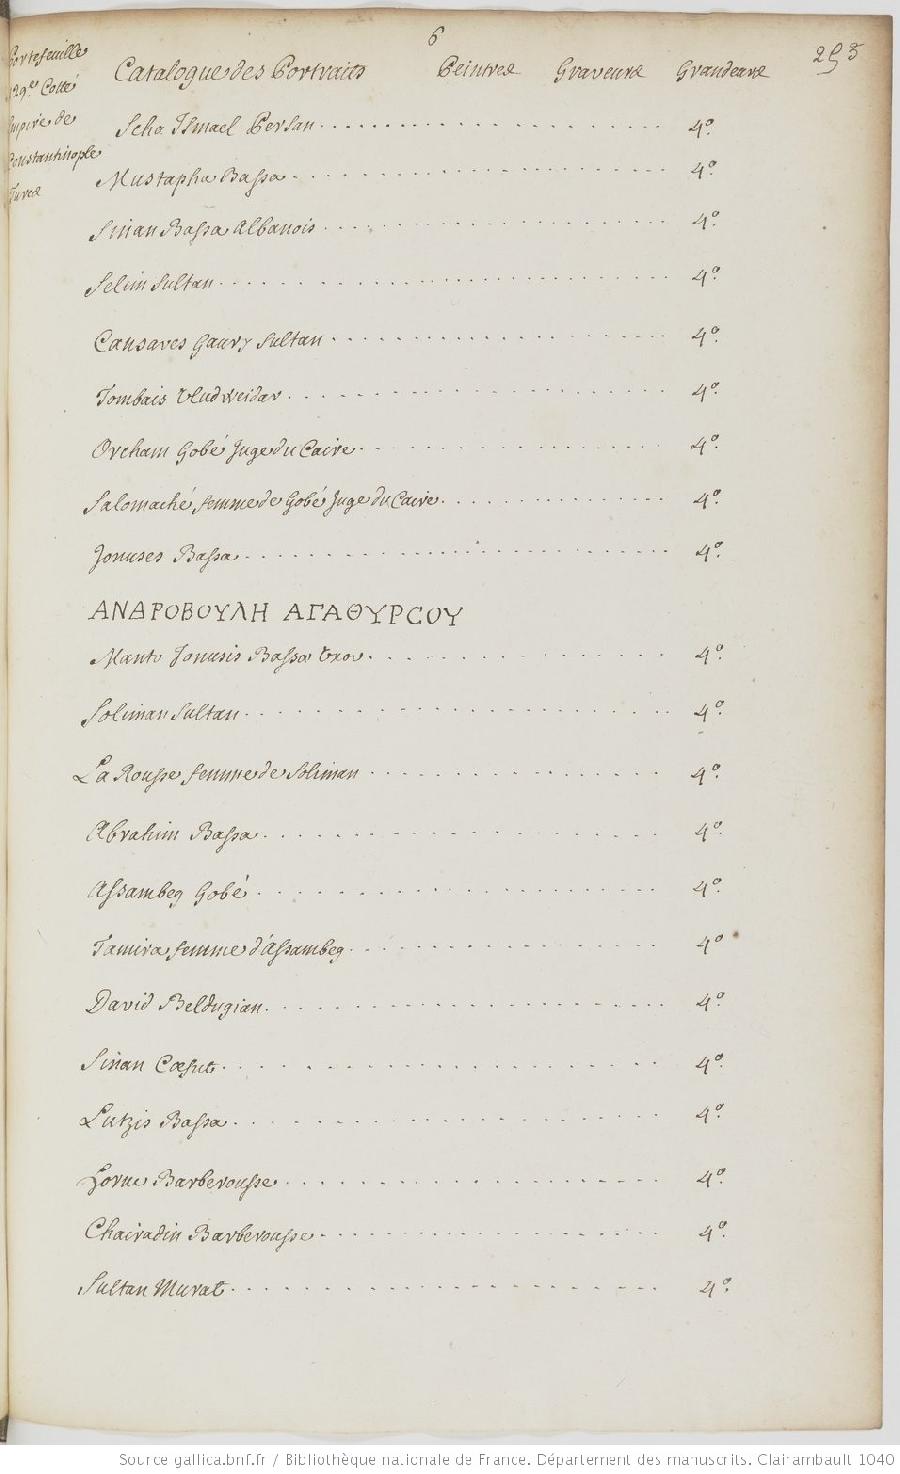 6
253
Portefeuille
129e Cotté
Empire de
Constantinople
Turcs
Catalogue des Portraits Peintres Graveurs Grandeurs
Scha Ismael Persan 4º.
Mustapha Bassa 4º.
Sinan Bassa Albanois 4º.
Selim Sultan 4º.
Cansaves Gaury Sultan 4º.
Tombais Uludweidar 4º.
Orcham Gobé Juge du Caire 4º.
Salomaché femme de Gobé Juge du Caire 4º.
Jonuses Bassa 4º.
ΑΝΔΡΟΒΟΥΛΗ ΑΓΑΘΥΡСΟΥ
Manto Jonusis Bassa Uxor 4º.
Soliman Sultan 4º.
La Rousse femme de Soliman 4º.
Abrahim Bassa 4º.
Assambeg Gobé 4º.
Tamira femme d'Assambeg 4º
David Beldugian 4º.
Sinan Cœsut 4º.
Lutzis Bassa 4º.
Horuc Barberousse 4º.
Chairadin Barberousse 4º.
Sultan Murat 4º.
Source gallica.bnf.fr / Bibliothèque nationale de France. Département des manuscrits. Clairambault 1040